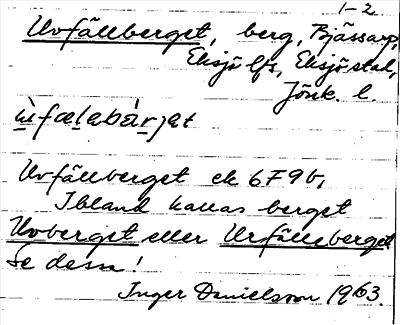 1-2
Uvfällberget, berg, Bjässarp,
Eksjö lfs, Eksjö stad,
Jönk. l.
Uvfällberget ek 6F9b,
Ibland kallas berget
Uvberget eller Urfälleberget
Se dessa!
Inger Danielsson 1963.